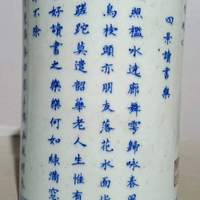 四景讀書樂
照檻水遶廊舞雩歸咏春風
鳥枝頭亦朋友落花水面皆
蹉跎莫遣韶華老人生惟有
好讀書之樂樂何如綠滿窗
不除